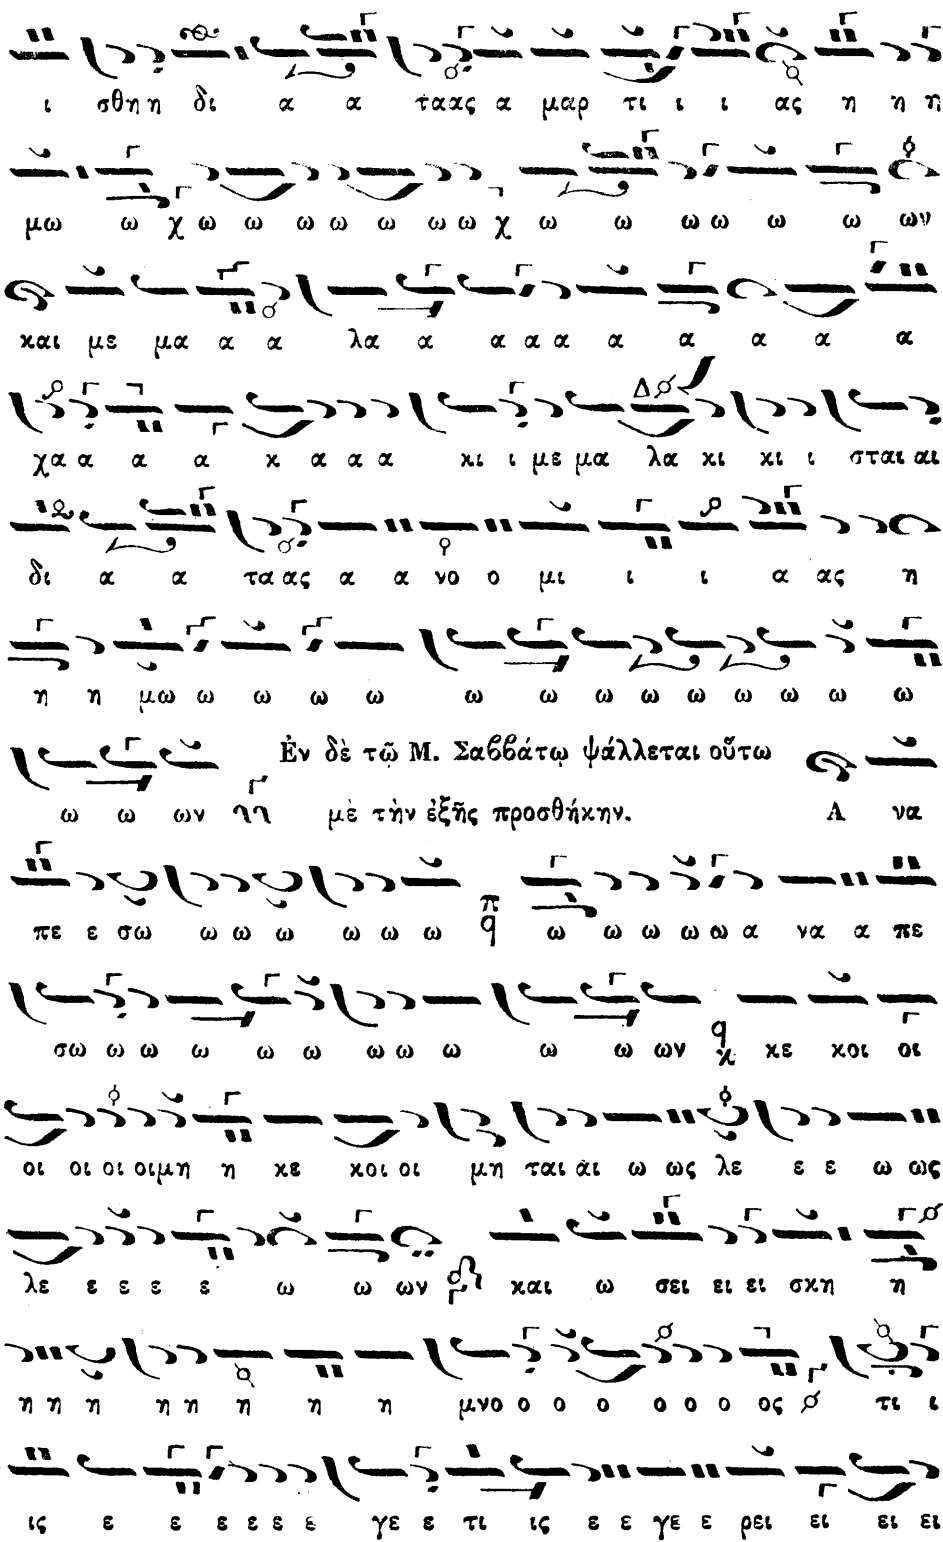 ι σθη η δι α α ταας α μαρ τι ι ι ας η η η
μω ω χ ω ω ω ω ω ω ω χ ω ω ω ω ω ω ων
και με μα α α λα α α α α α α α α α
χα α α α κ α α α κι ι με μα λα κι κι ι σται αι
δι α α τα ας α α νο ο μι ι ι α ας η
η η μω ω ω ω ω ω ω ω ω ω ω ω ω ω
Ἐν δὲ τῷ Μ. Σαββάτῳ ψάλλεται οὕτω
ω ω ων μὲ τὴν ἑξῆς προσθήκην. Α να
πε ε σω ω ω ω ω ω ω π q ω ω ω ω ω α να α πε
σω ω ω ω ω ω ω ω ω ω ω ων q κ κε κοι οι
οι οι οι οι μη η κε κοι οι μη ται αι ω ως λε ε ε ω ως
λε ε ε ε ε ω ω ων και ω σει ει ει σκη η
η η η η η η η η μνο ο ο ο ο ο ο ος τι ι
ις ε ε ε ε ε ε γε ε τι ις ε ε γε ε ρει ει ει ει